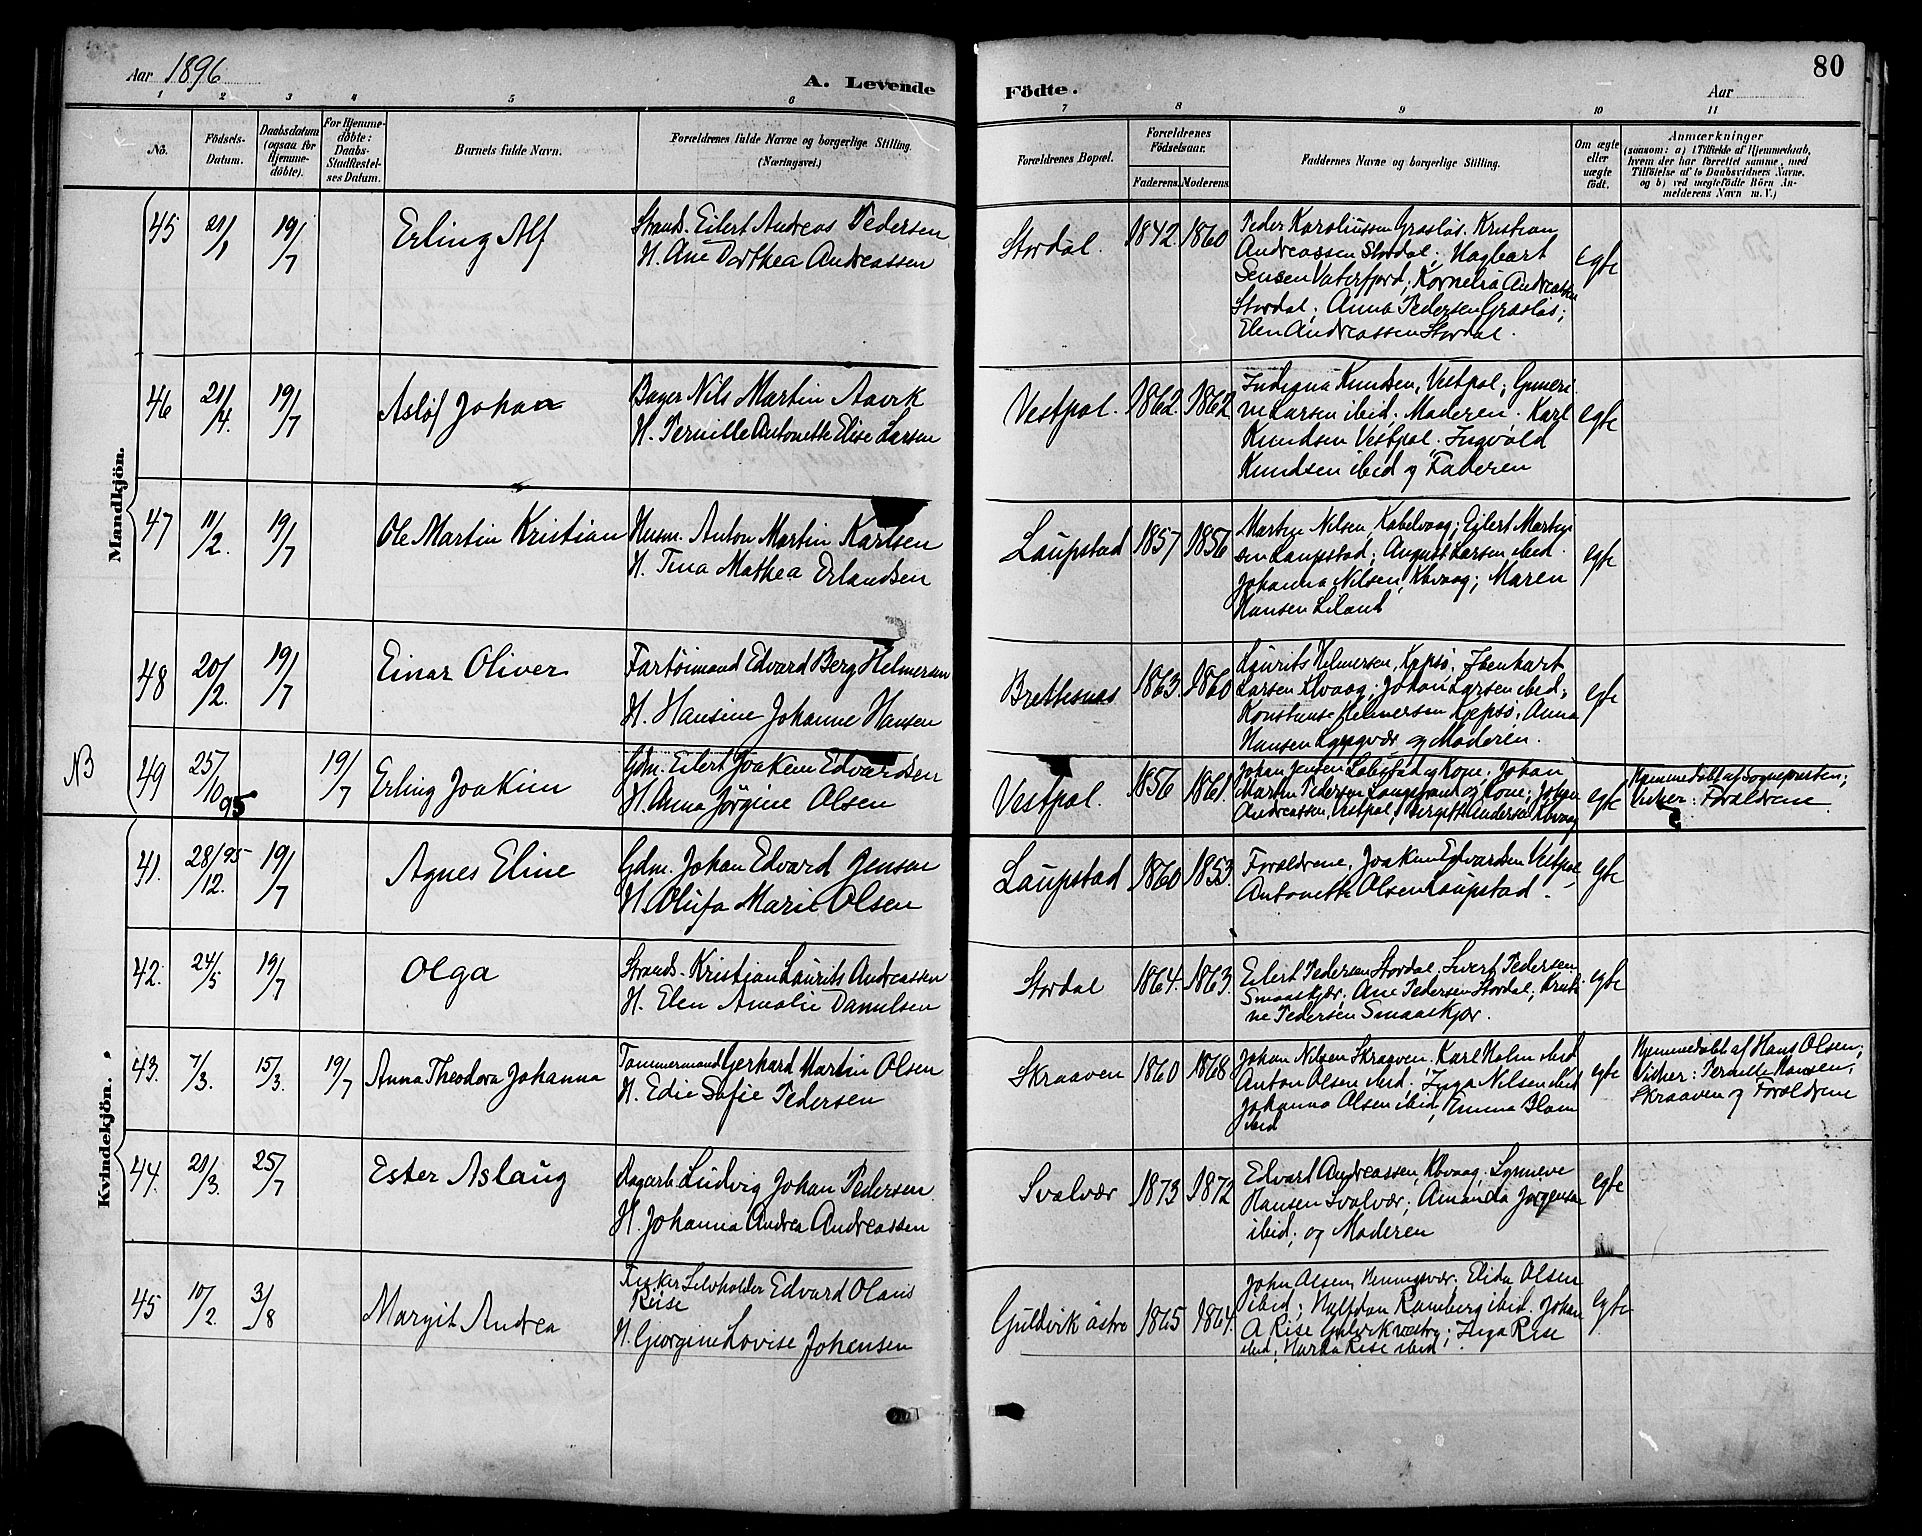 Aar 1896
A. Levende
Födte.
80
Aar
1 2 3 4 5 6 7 8 9 10 11
No.
Födsels-
Datum.
Daabsdatum
(ogsaa for
Hjemme-
döbte).
For Hjemme-
döbte:
Daabs-
Stadfæstel-
ses Datum.
Barnets fulde Navn.
Forældrenes fulde Navne og borgerlige Stilling.
(Næringsvei.)
Forældrenes Bopæl.
Forældrenes
Födselsaar.
Faderens. Moderens.
Faddernes Navne og borgerlige Stilling.
Om ægte
eller
uægte
født.
Anmærkninger
(saasom: a) i Tilfælde af Hjemmedaab,
hvem der har forrettet samme, med
Tilföielse af to Daabsvidners Navne,
og b) ved uægtefödte Börn An-
melderens Navn m. V.)
Mandkjön.
45 21/1 19/7 Erling Alf
Strands. Eilert Andreas Pedersen
H. Ane Dorthea Andreassen
Stordal. 1842 1860
Peder Karoliussen Grasløs. Kristian
Andreassen Stordal; Hagbart
Jensen Vaterfjord; Kornelia Andreassen
Stordal; Anna Pedersen Grasløs;
Elen Andreassen Stordal.
egte
46 21/4. 19/7 Asløf Johan
Bager Nils Martin Aavik
H. Pernille Antonette Elise Larsen
Vestpol. 1862. 1862
Knudsen, Vestpol;
Larsen ibid. Moderen. Karl
Knudsen Vestpol. Ingvald
Knudsen ibid og Faderen
egte
47 11/2. 19/7 Ole Martin Kristian
Husm. Anton Martin Karlsen
H. Tina Mathea Erlandsen
Laupstad 1857 1856
Martin Nilsen, Kabelvaag; Eilert Martin
sen Laupstad; August Larsen ibid.
Johanna Nilsen, Kbvaag; Maren
Hansen Liland
egte
48 20/2. 19/7 Einar Oliver
Fartöimand Edvard Berg Helmersen
H. Hansine Johanne Hansen
Brettesnæs 1863. 1860
Laurits Helmersen, Kjepsö; Ibenhart
Larsen Kbvaag; Johan Larsen ibid;
Konstanse Helmersen Kjepsö; Anna
Hansen og Moderen.
egte
NB 49 25/10 95 19/7 Erling Joakim
Gdm. Eilert Joakim Edvardsen
H. Anna Jörgine Olsen
Vestpol. 1856 1861.
Johan Jensen og Kone. Johan
Martin Pedersen og Kone; Johan
Andreassen, Vestpol, Bergitte Andersen Kbvaag
egte
Hjemmedøbt af Sognepresten;
Vidner: Forældrene
Kvindekjön.
41. 28/12. 95 19/7 Agnes Eline
Gdm. Johan Edvard Jensen
H. Olufa Marie Olsen
Laupstad 1860 1853.
Forældrene, Joakim Edvardsen Vestpol,
Antonette Olsen Laupstad.
egte
42. 24/5 19/7 Olga
Strands. Kristian Laurits Andreassen
H. Elen Amalie Danielsen
Stordal 1864. 1863.
Eilert Pedersen Stordal, Sivert Pedersen
Smaaskjær, Ane Pedersen Stordal; Kristi-
ne Pedersen Smaaskjær.
egte
43. 7/3. 15/3. 19/7 Anna Theodora Johanna
Tømmermand Gerhard Martin Olsen
H. Edie Sofie Pedersen
Skraaven 1860 1868
Johan Nilsen Skraaven. Karl Holm ibid
Anton Olsen ibid. Inga Nilsen ibid
Johanna Olsen ibid, Emma
ibid
egte
Hjemmedøbt af Hans Olsen;
Vidner: Pernille Hansen,
Skraaven og Forældrene
44. 21/3. 25/7 Ester Aslaug
Dagarb. Ludvig Johan Pedersen
H. Johanna Andrea Andreassen
Svolvær 1873 1872
Edvart Andreassen, Kbvaag; Synneve
Hansen Svolvær; Amanda Jørgensen
ibid; og Moderen
egte
45 10/2. 3/8 Margit Andrea
Fisker Selvholder Edvard Olaus
Riise
H. Georgine Lovise Johensen
Guldvik östre 1865 1864.
John Olsen, Henningsvær. Elida Olsen
ibid; Halfdan Ramberg ibid. Johan
A Rise Guldvik vestre; Inga Rise
ibid, Rise ibid
egte